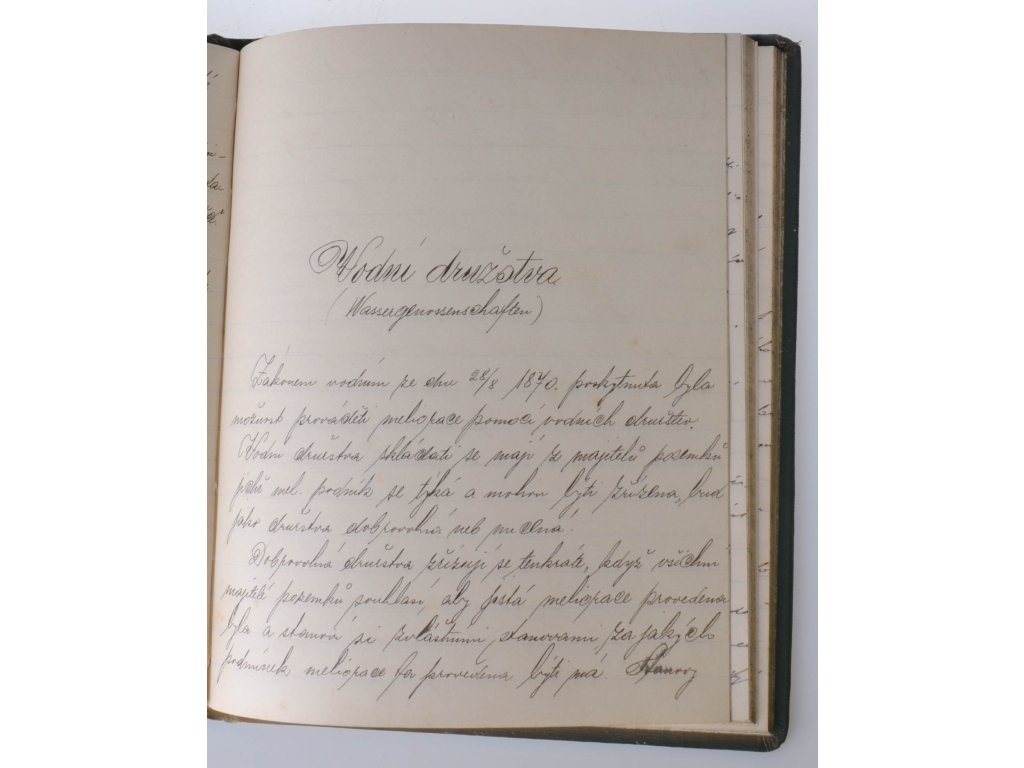 Vodní družstva
(Wassergenossenschaften)
Zákonem vodním ze dne 28/8 1870. poskytnuta byla
možnost prováděti meligrace pomocí vodních družstev.
Vodní družstva skládati se mají z majitelů pozemků
jichž mel. podnik se týká a mohou býti zřízena, buď
jako družstva dobrovolná neb nucená.
Dobrovolná družstva zřizují se tenkráte, když všichni
majitelé pozemků souhlasí, aby jistá meligrace provedena
byla a stanoví si zvláštními stanovami, za jakých
podmínek meligrace ta provedena býti má. Stanovy